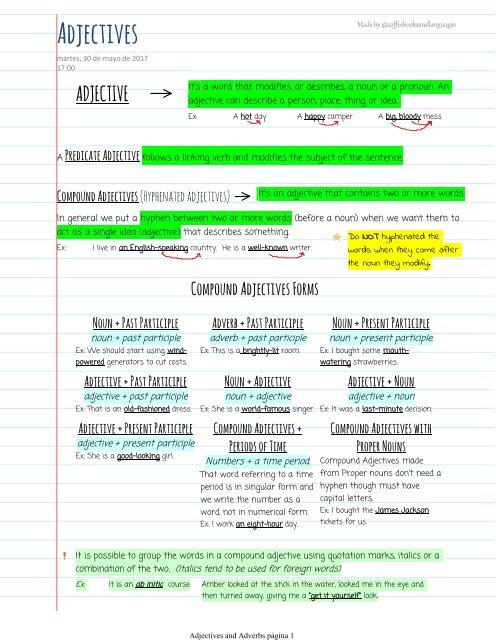 Adjectives
Made by @coffeebooksandlanguages
martes, 30 de mayo de 2017
17:00
ADJECTIVE
It's a word that modifies, or describes, a noun or a pronoun. An
adjective can describe a person, place, thing or idea.
Ex: A hot day A happy camper A big, bloody mess
A Predicate Adjective follows a linking verb and modifies the subject of the sentence.
Compound Adjectives (Hyphenated adjectives) It's an adjective that contains two or more words.
In general we put a hyphen between two or more words (before a noun) when we want them to
act as a single idea (adjective) that describes something.
Ex: I live in an English-speaking country. He is a well-known writer.
Do NOT hyphenated the
words when they come after
the noun they modify.
Compound Adjectives Forms
Noun + Past Participle
noun + past participle
Ex: We should start using wind-
powered generators to cut costs.
Adverb + Past Participle
adverb + past participle
Ex: This is a brightly-lit room.
Noun + Present Participle
noun + present participle
Ex: I bought some mouth-
watering strawberries.
Adjective + Past Participle
adjective + past participle
Ex: That is an old-fashioned dress.
Noun + Adjective
noun + adjective
Ex: She is a world-famous singer.
Adjective + Noun
adjective + noun
Ex: It was a last-minute decision.
Adjective + Present Participle
adjective + present participle
Ex: She is a good-looking girl.
Compound Adjectives +
Periods of Time
Numbers + a time period
That word referring to a time
period is in singular form and
we write the number as a
word, not in numerical form.
Ex: I work an eight-hour day.
Compound Adjectives with
Proper Nouns
Compound Adjectives made
from Proper nouns don't need a
hyphen though must have
capital letters.
Ex: I bought the James Jackson
tickets for us.
! It is possible to group the words in a compound adjective using quotation marks, italics or a
combination of the two. (Italics tend to be used for foreign words)
Ex: It is an ab initio course Amber looked at the stick in the water, looked me in the eye and
then turned away, giving me a "get it yourself" look.
Adjectives and Adverbs página 1